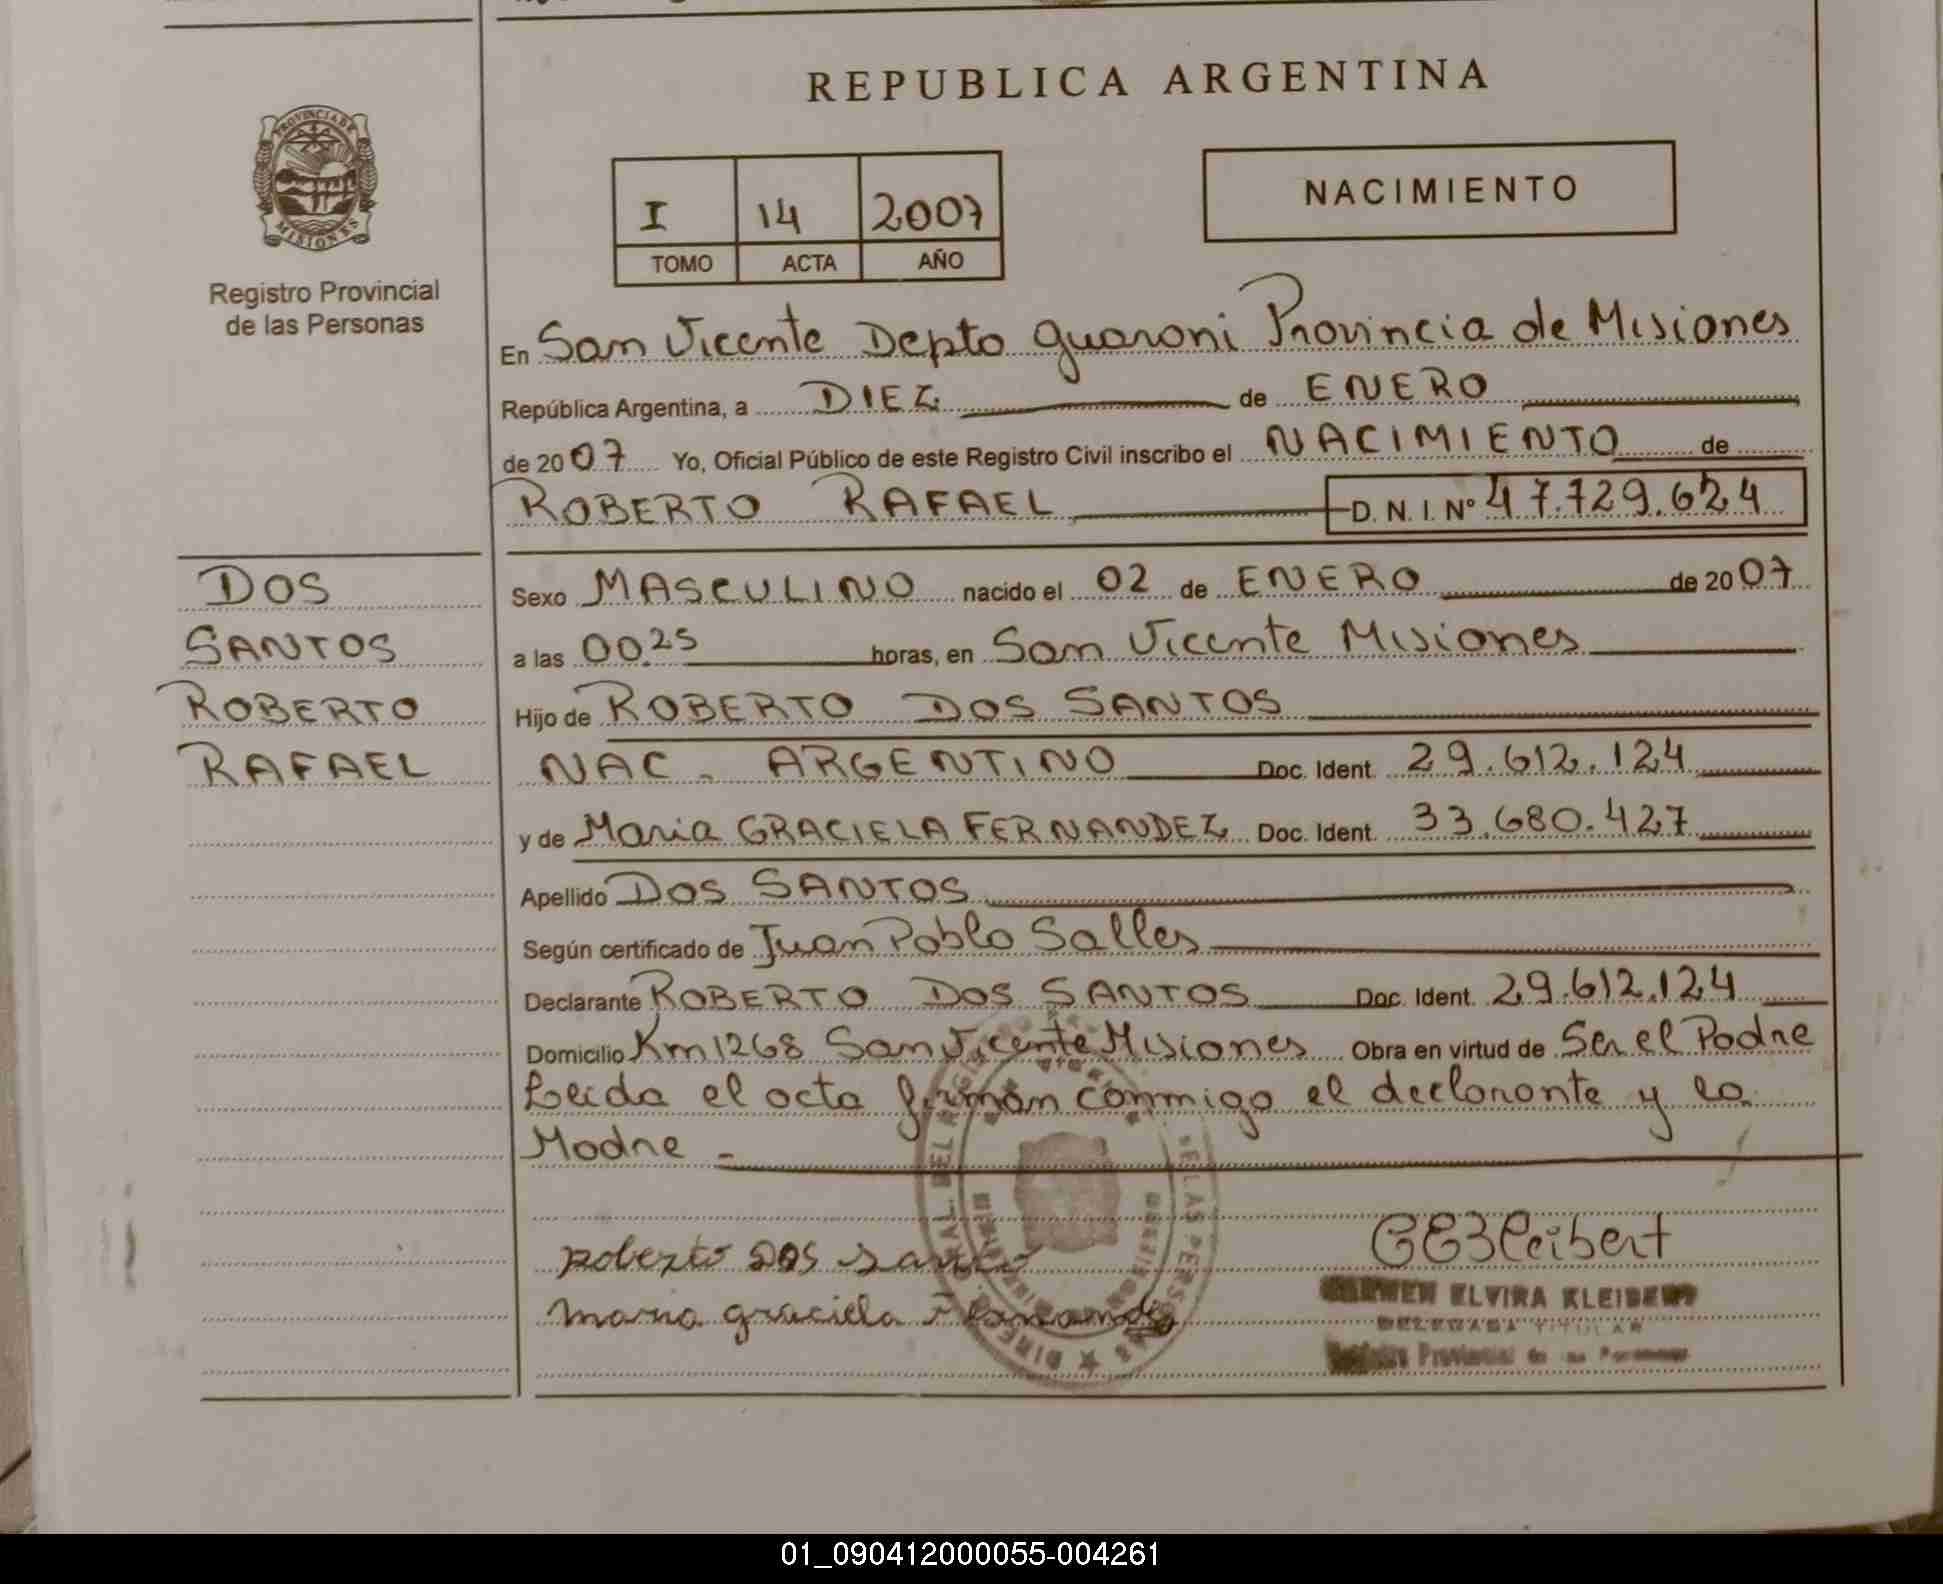 REPUBLICA ARGENTINA
PROVINCIA DE
MISIONES
Registro Provincial
de las Personas
I 14 2007
TOMO ACTA AÑO
NACIMIENTO
En San Vicente Depto guarani Provincia de Misiones
República Argentina, a DIEZ de ENERO
de 2007 Yo, Oficial Público de este Registro Civil inscribo el NACIMIENTO de
ROBERTO RAFAEL D. N. I. Nº 47.729.624
DOS
SANTOS
ROBERTO
RAFAEL
Sexo MASCULINO nacido el 02 de ENERO de 2007
a las 00.25 horas, en San Vicente Misiones
Hijo de ROBERTO DOS SANTOS
NAC. ARGENTINO Doc. Ident. 29.612.124
y de Maria GRACIELA FERNANDEZ Doc. Ident. 33.680.427
Apellido DOS SANTOS
Según certificado de Juan Pablo Salles
Declarante ROBERTO DOS SANTOS Doc. Ident. 29.612.124
Domicilio Km 1268 San Vicente Misiones Obra en virtud de Ser el Padre
Leida el acta firman conmigo el declarante y la
Madre -
Roberto DOS santos
maria graciela Fernandez
CARMEN ELVIRA KLEIBERT
DELEGADA TITULAR
Registro Provincial de las Personas
01_090412000055-004261